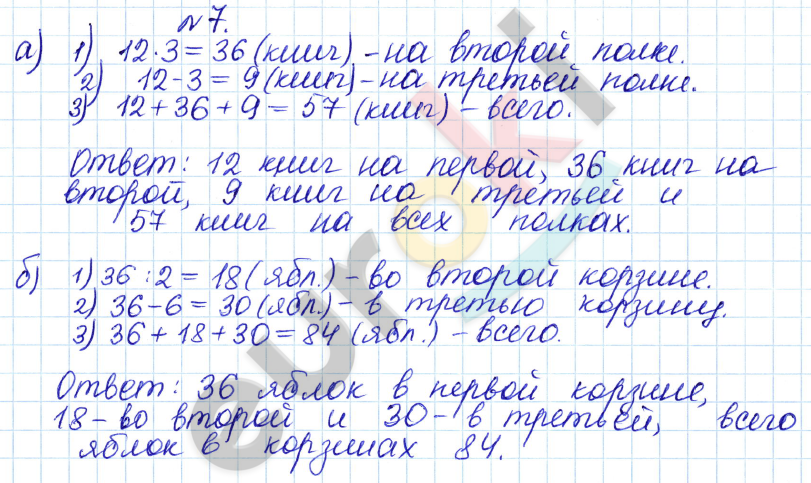 № 7.
а) 1) 12·3 = 36 (книг) – на второй полке.
2) 12 - 3 = 9 (книг) – на третьей полке.
3) 12 + 36 + 9 = 57 (книг) – всего.
Ответ: 12 книг на первой, 36 книг на
второй, 9 книг на третьей и
57 книг на всех полках.
б) 1) 36 : 2 = 18 (ябл.) – во второй корзине.
2) 36 – 6 = 30 (ябл.) – в третью корзину.
3) 36 + 18 + 30 = 84 (ябл.) – всего.
Ответ: 36 яблок в первой корзине,
18 – во второй и 30 – в третьей, всего
яблок в корзинах 84.
euroki